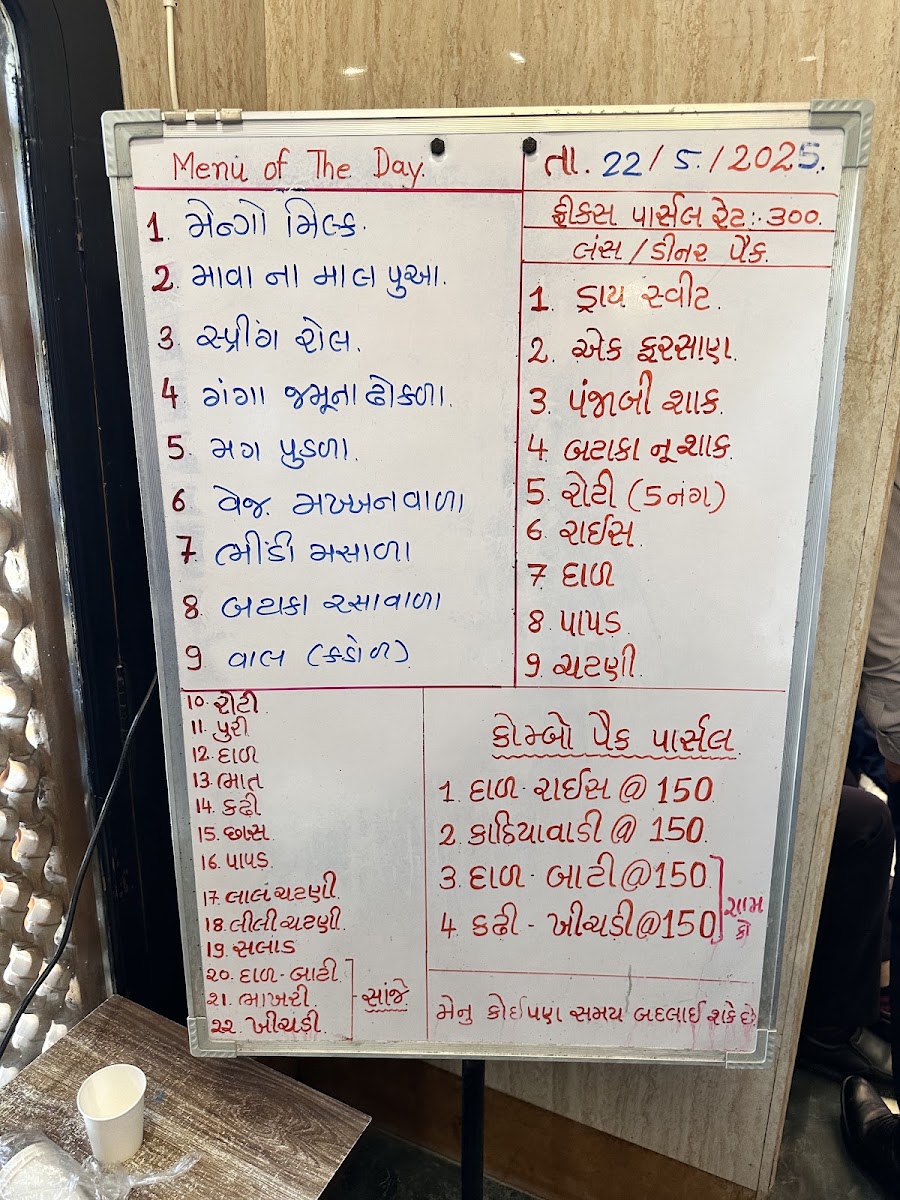 Menu of The Day.
તા. 22/5/2025.
1. મેન્ગો મિલ્ક.
2. માવા ના માલ પુઆ.
3. સ્પ્રીંગ રોલ.
4. ગંગા જમૂના ઢોકળા.
5. મગ પુડળા.
6 વેજ. મખ્ખનવાળા
7. ભીંડી મસાળા
8. બટાકા રસાવાળા
9. વાલ (કઠોળ)
10. રોટી.
11. પુરી
12. દાળ
13. ભાત
14. કઢી
15. છાસ.
16. પાપડ
17. લાલ ચટણી
18. લીલી ચટણી.
19. સલાડ
૨૦. દાળ-બાટી
૨૧. ભાખરી.
૨૨. ખીચડી.
સાંજે.
ફીકસ પાર્સલ રેટ:- ૩૦૦.
લંસ / ડીનર પૈક.
1. ડ્રાય સ્વીટ.
2. એક ફરસાણ.
3. પંજાબી શાક.
4 બટાકા નૂ શાક
5. રોટી (5 નંગ)
6. રાઈસ.
7. દાળ
8. પાપડ
9. ચટણી.
કોમ્બો પૈક પાર્સલ
1. દાળ-રાઈસ @ 150
2. કાઠિયાવાડી @ 150.
3. દાળ-બાટી@150
4. કઢી - ખીચડી@150
શામ
કો
મેનુ કોઈપણ સમય બદલાઈ શકે છે